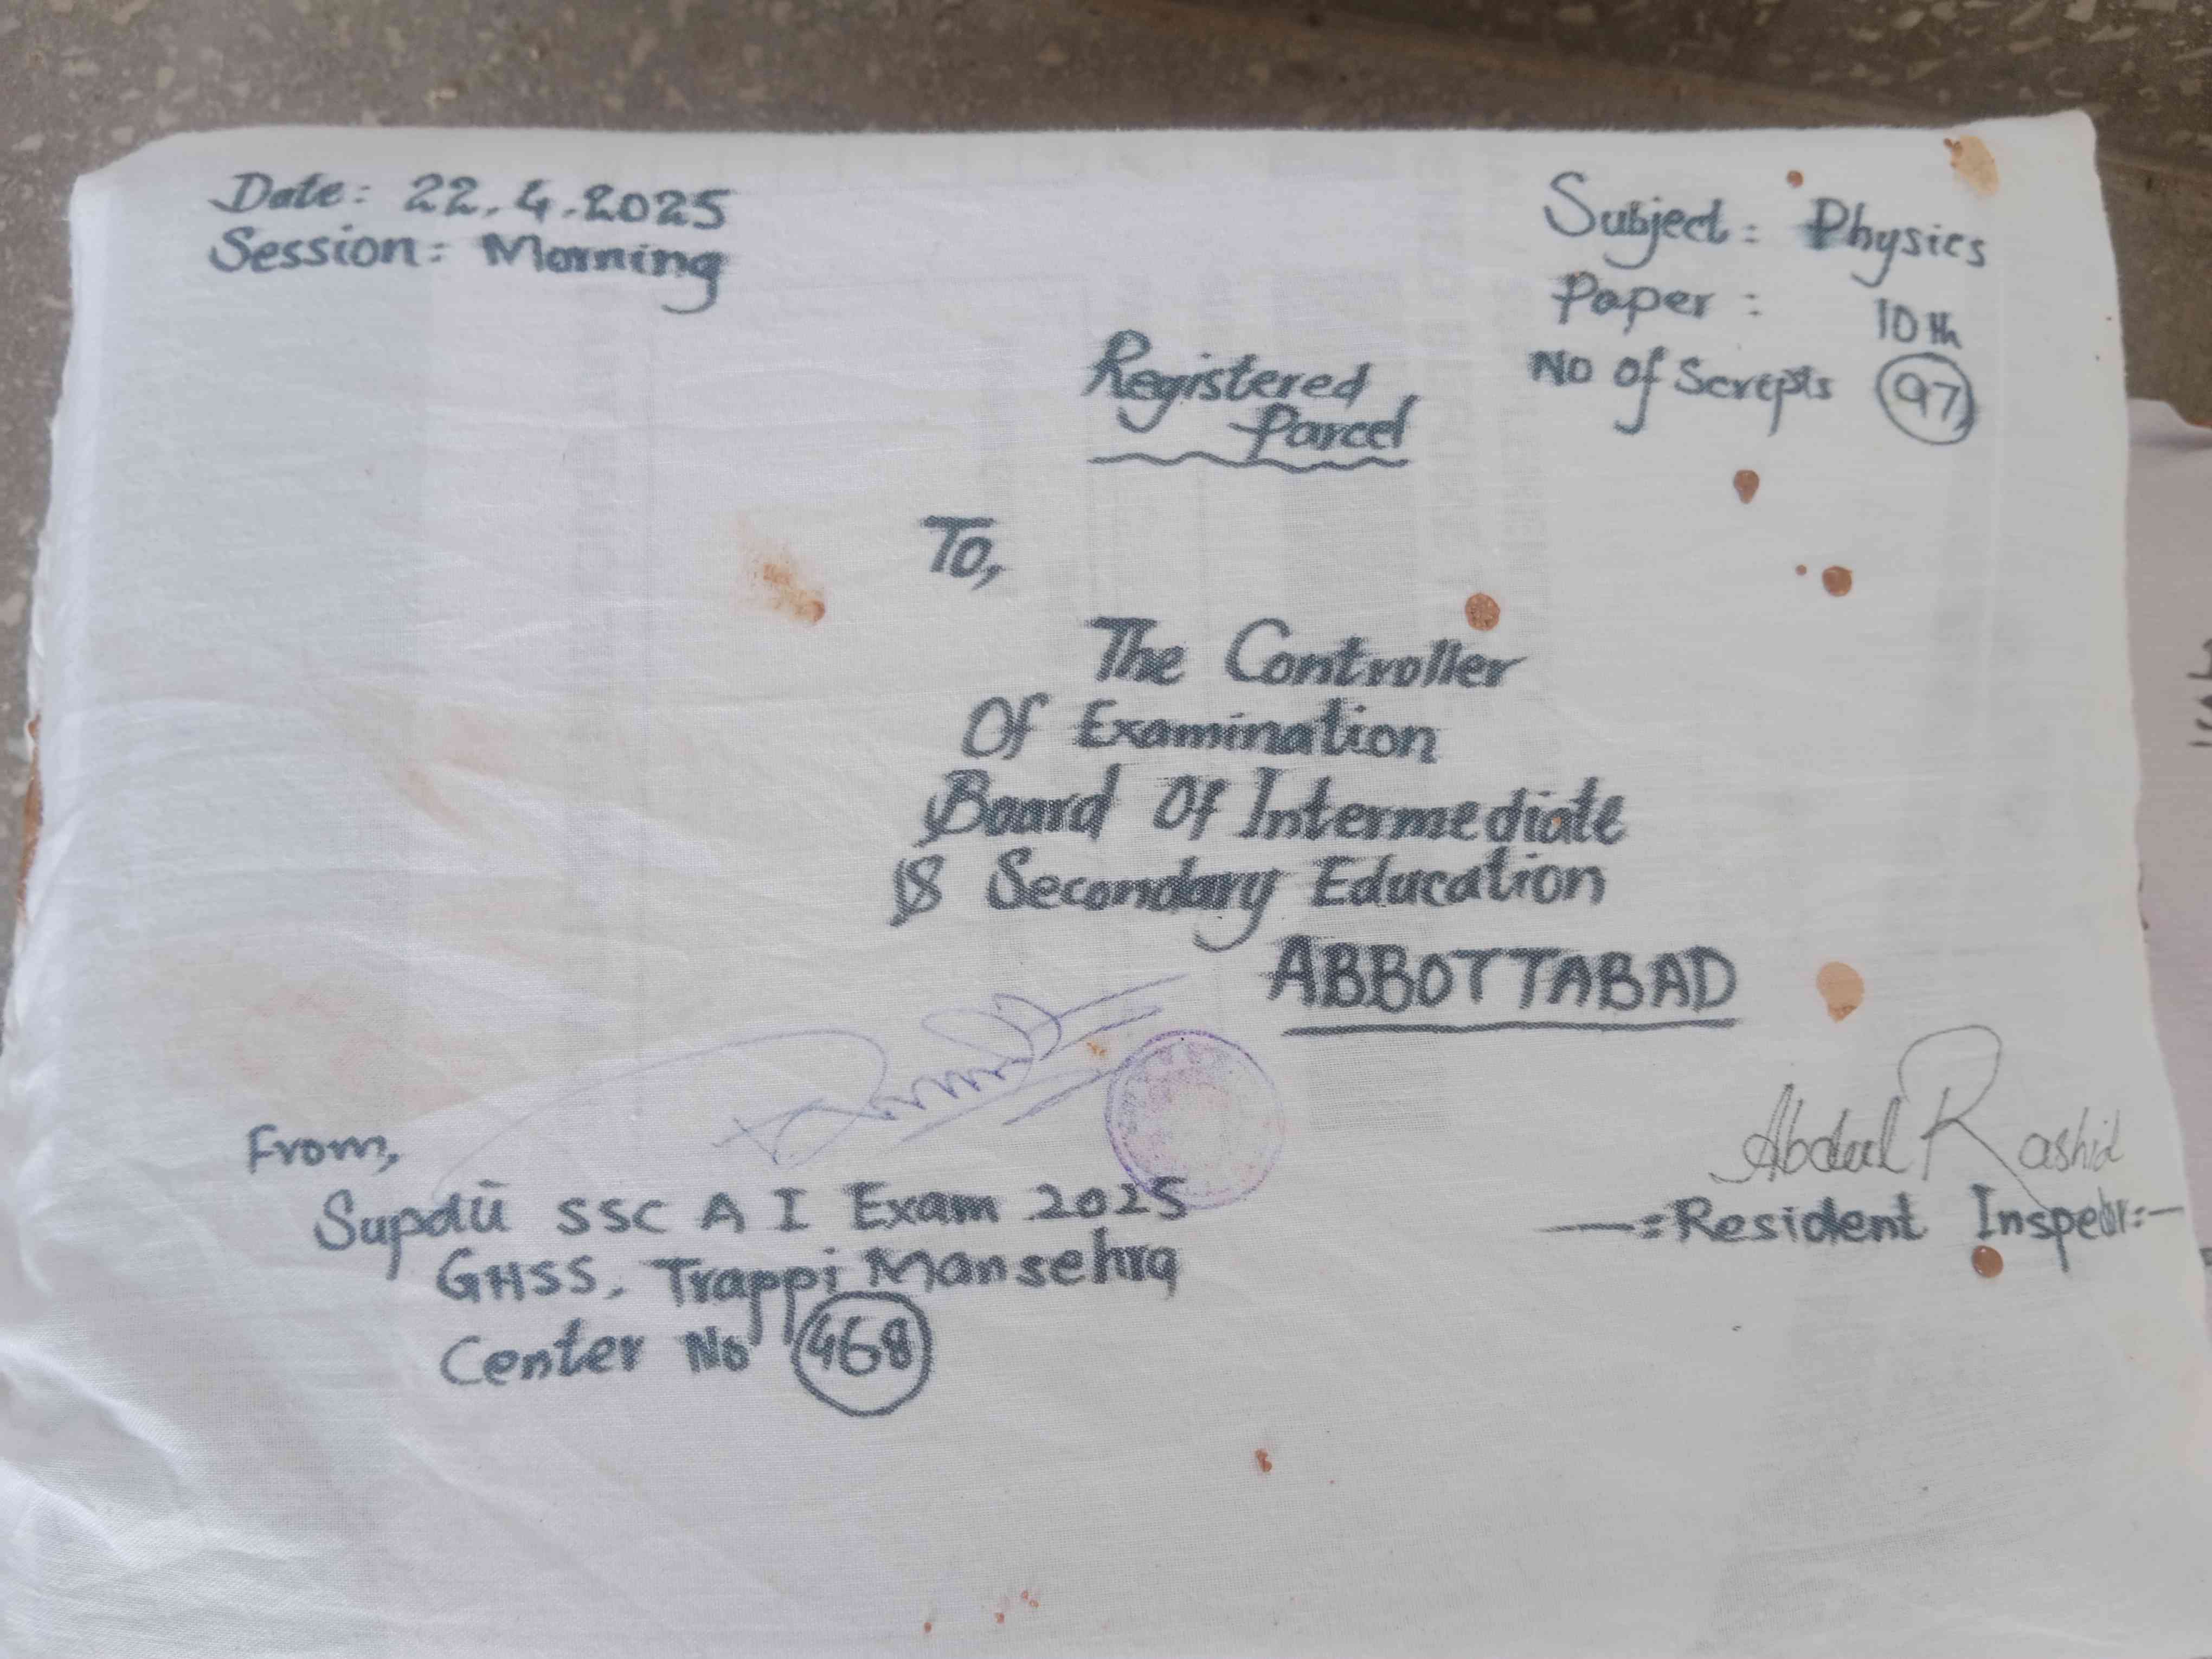 Date: 22.4.2025
Session: Morning
Subject: Physics
Paper: 10th
No of Scripts 97
Registered
Parcel
To,
The Controller
Of Examination
Board Of Intermediate
& Secondary Education
ABBOTTABAD
From,
Supdtt SSC A I Exam 2025
GHSS, Trappi Mansehra
Center No 468
Abdul Rashid
Resident Inspector